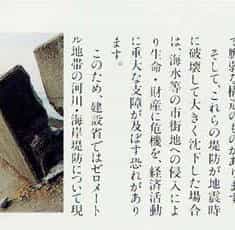 で脆弱な構造のものがあります。
そして、これらの堤防が地震時
に破壊して大きく沈下した場合
は、海水等の市街地への侵入によ
り生命・財産に危機を、経済活動
に重大な支障が及ぼす恐れがあり
ます。
このため、建設省ではゼロメート
ル地帯の河川・海岸堤防について現